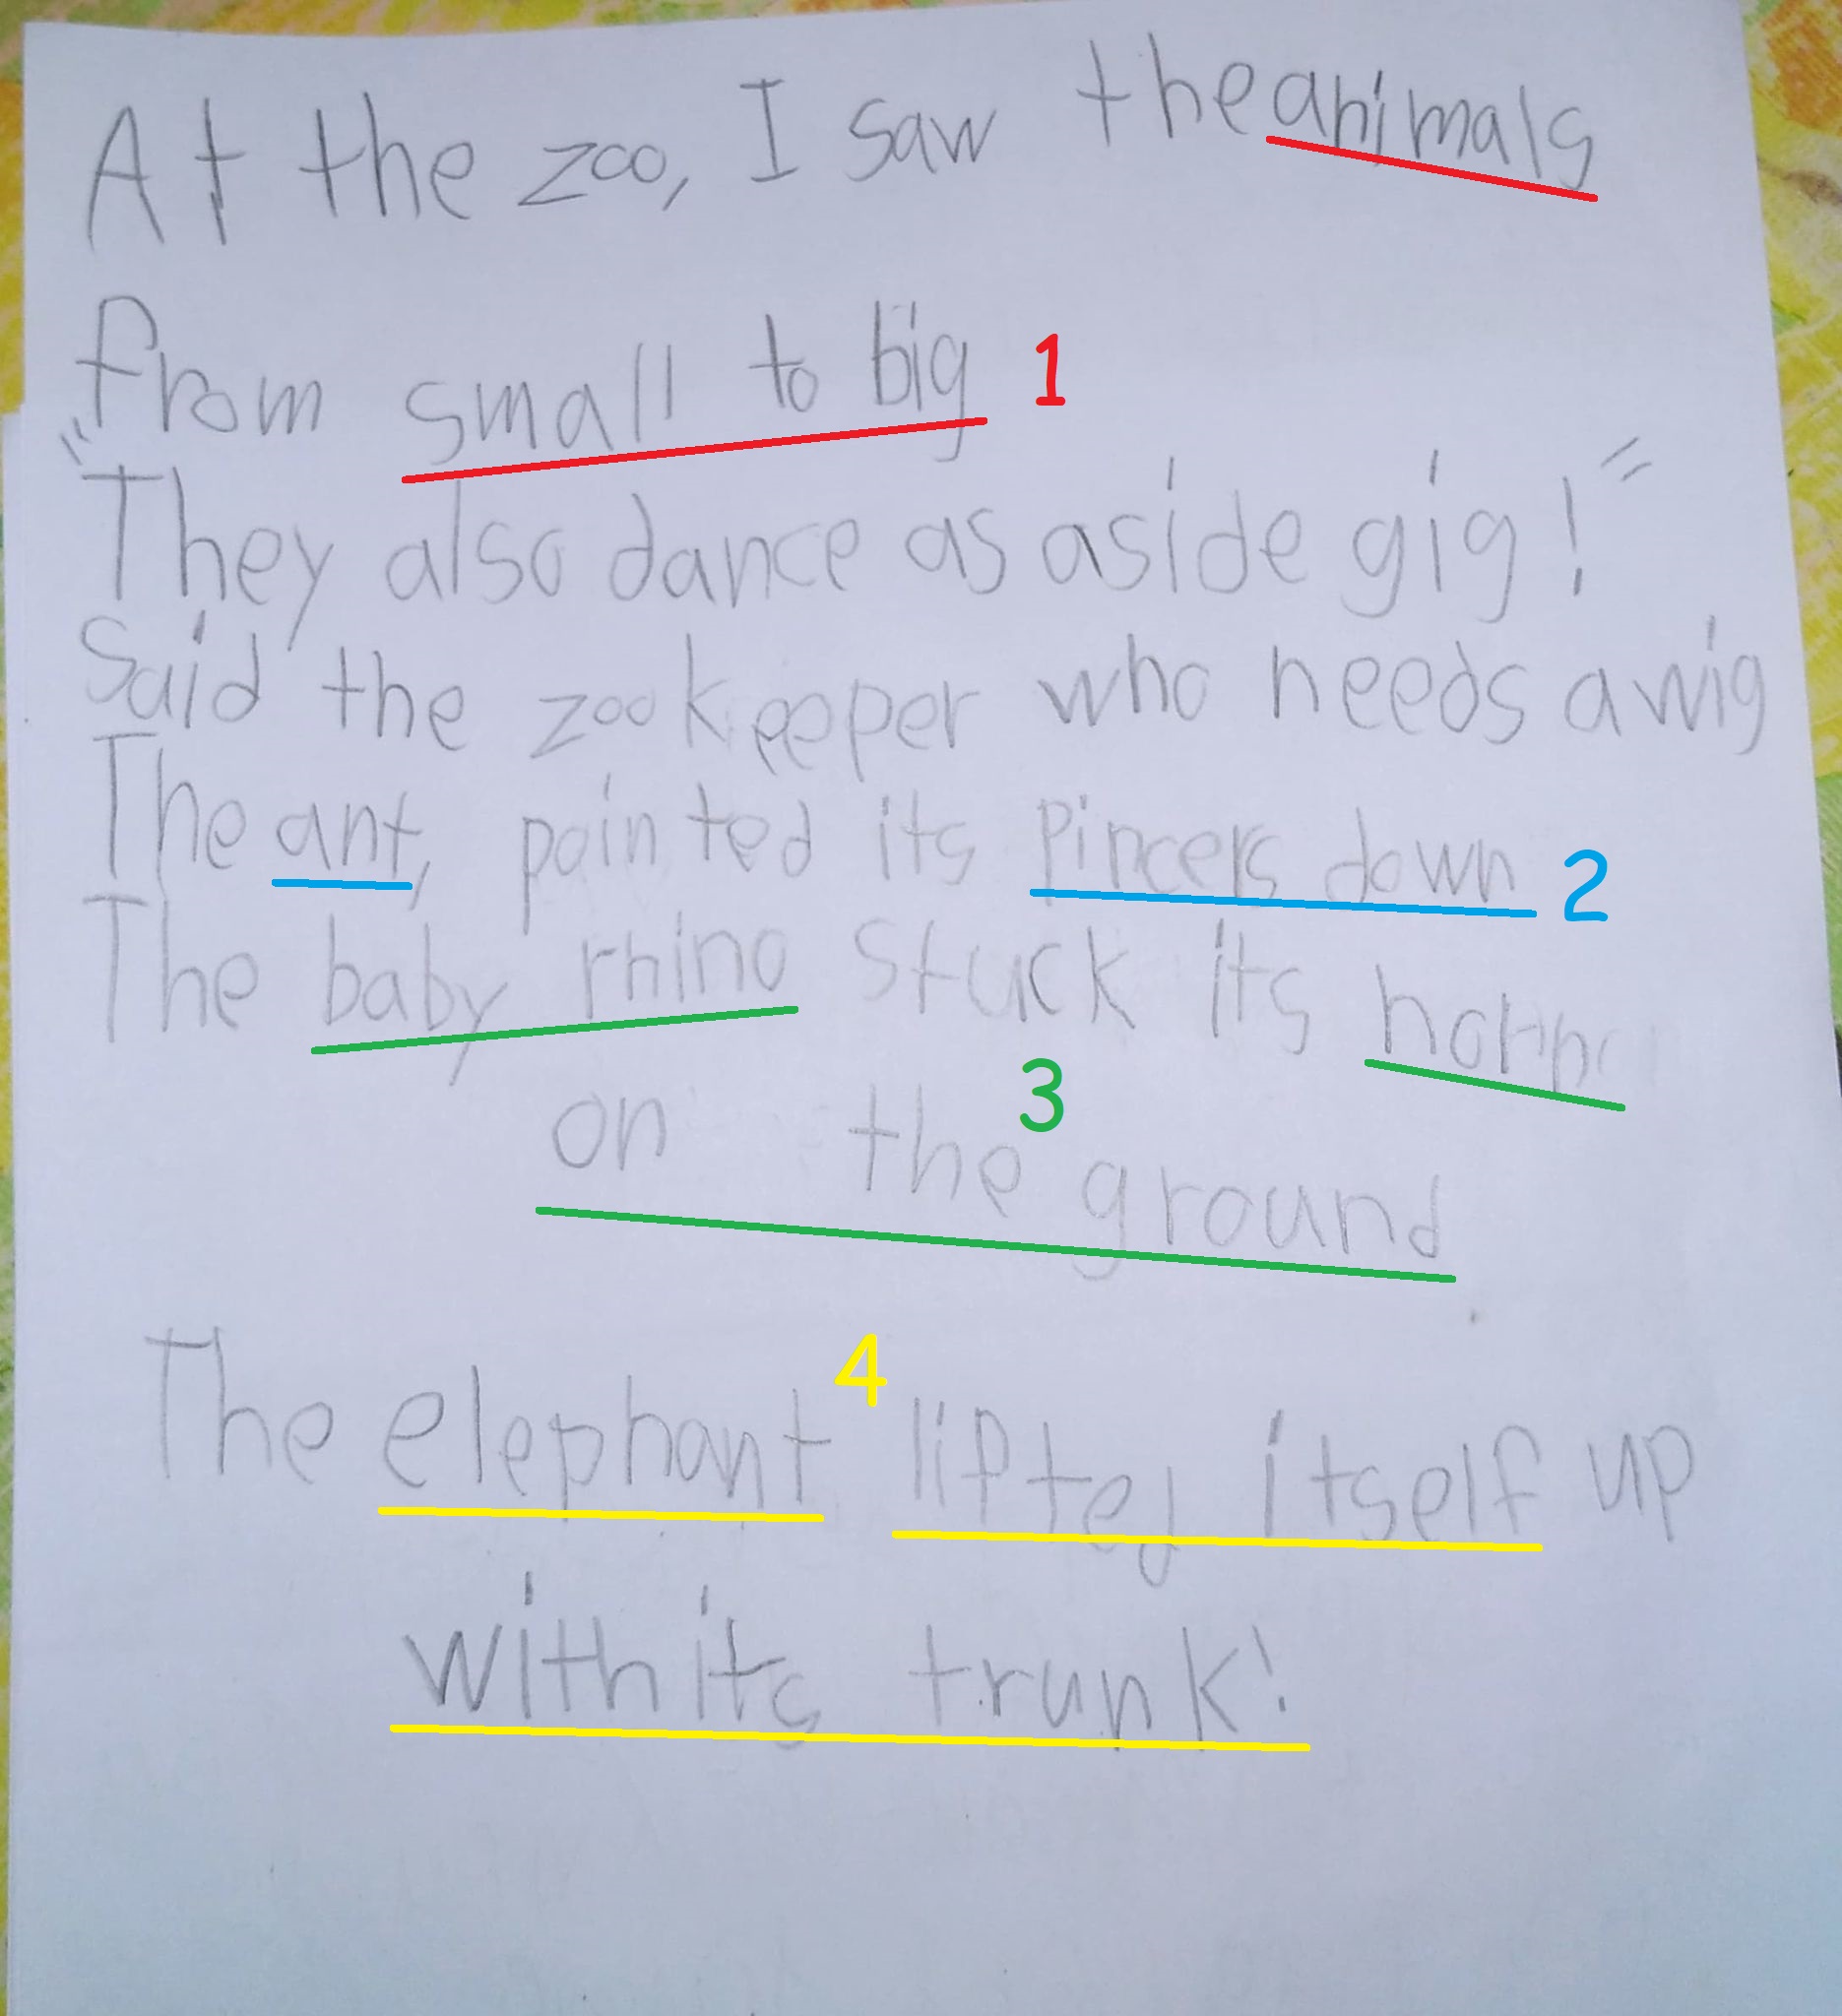 At the zoo, I saw the animals
from small to big 1
"They also dance as a side gig!"
Said the zookeeper who needs a wig
The ant, pointed its pincers down 2
The baby rhino stuck its horn
on the ground 3
The elephant lifted itself up 4
with its trunk!